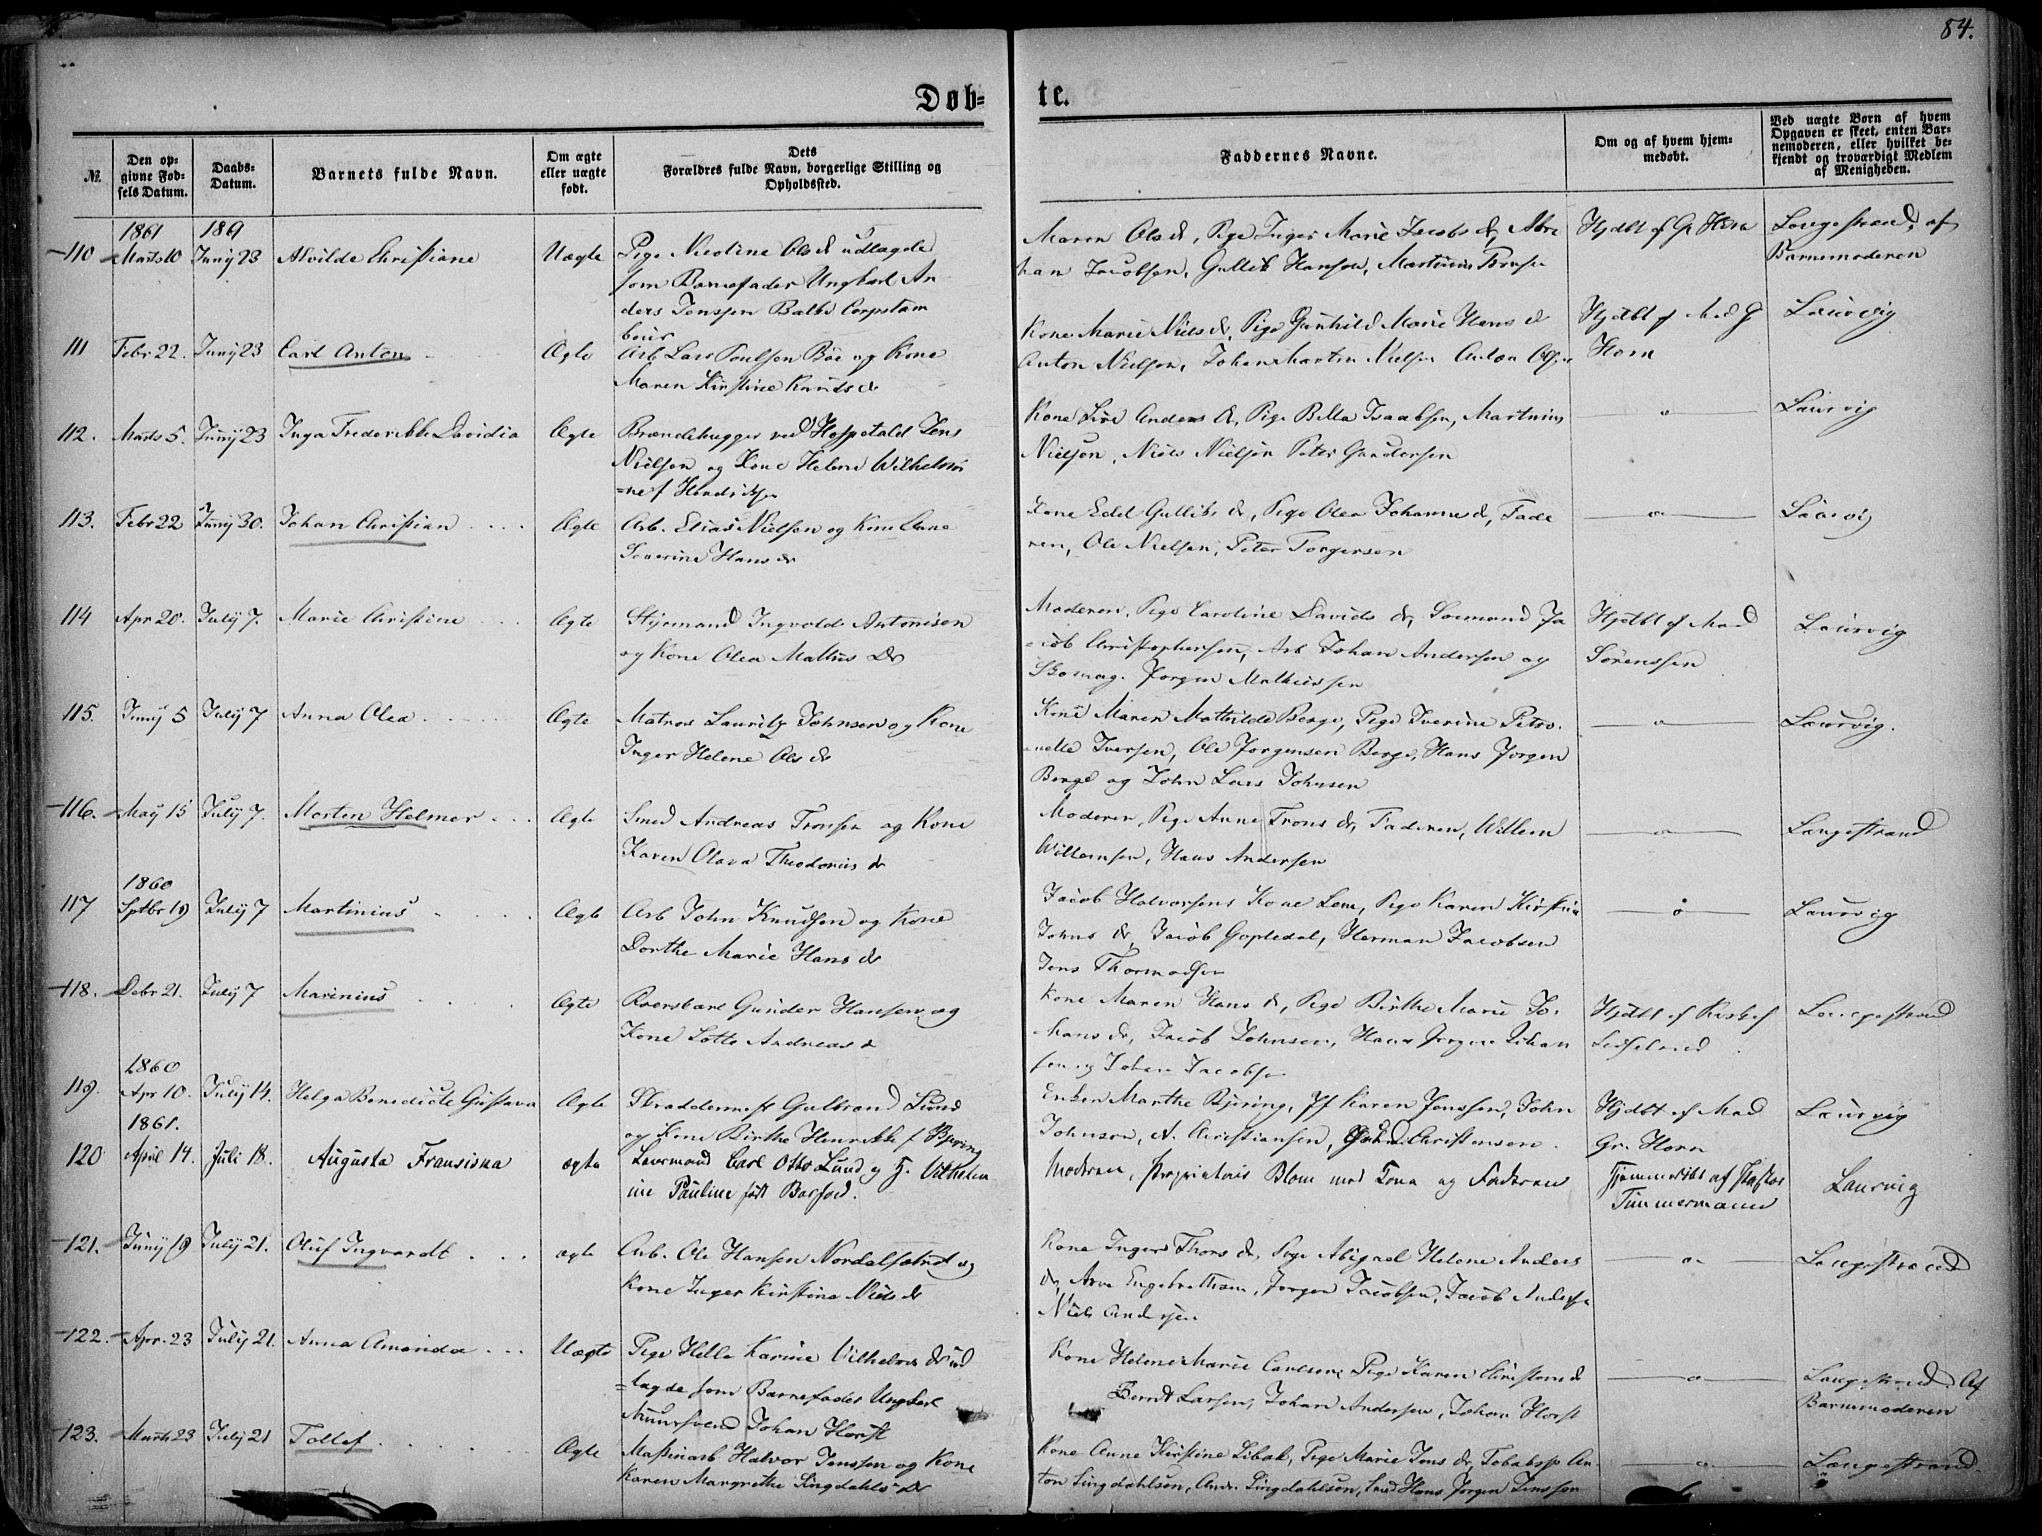 84.
Døb=
te.
№.
Den op=
givne Fød=
sels Datum.
Daabs=
Datum.
Barnets fulde Navn.
Om ægte
eller uægte
født.
Dets
Forældres fulde Navn, borgerlige Stilling og
Opholdssted.
Faddernes Navne.
Om og af hvem hjem=
medøbt.
Ved uægte Børn af hvem
Opgaven er skeet, enten Bar=
nemoderen, eller hvilket be=
kjendt og troværdigt Medlem
af Menigheden.
1861 1861
110 Marts 10 Juny 23 Alvilde Christiane Uægte Pige Nicoline Ols d udlagde
som Barnefader Ungkarl An
ders Jenssen Corpstam
bour
Maren Ols d, Pige Inger Marie Jacobs d, Abra
ham Jacobsen, Gullik Hansen, Martinus
Hjdbt af Gr Horn
Langestrand, af
Barnemoderen
111 Febr 22. Juny 23 Carl Anton Ægte Arb Lars Poulsen Bøe og Kone
Maren Kirstine Knuds d
Kone Marie Niels d, Pige Gunhild Marie Hans d
Anton Nielsen, Johan Martin Nielsen Anton Olsen
Hjdbt af Mad G
Horn
Laurvig
112. Marts 5. Juny 23 Inga Frederikke Davidia Ægte Brændehugger ved Hospitalet Jens
Nielsen og Kone Helene Wilhelmi
=ne f Hendriksen
Kone Live Anders d, Pige Bella Isaaksen, Martinius
Nielsen, Niels Nielsen Peter Gundersen
— " —
Laurvig
113. Febr 22 Juny 30. Johan Christian Ægte Arb. Elias Nielsen og Kone Lane
Severine Hans d
Kone Edel Gulliks d, Pige Olea Johanne d, Fade
ren, Ole Nielsen, Peter Torgersen
— " —
Laurvig
114 Apr 20. July 7. Marie Christine Ægte Styrmand Ingvald Antonisen
og Kone Olea Mathis Dr
Moderen, Pige Caroline Davids d, Sømand Ja
cob Christophersen, Arb Johan Andersen og
Skomag. Jørgen Mathissen
Hjdbt af Mad
Sørenssen
Laurvig
115. Juny 5 July 7 Anna Olea Ægte Matros Lauritz Johnsen og Kone
Inger Helene Ols d
Kone Maren Mathilde Berge, Pige Iverine Petro=
nelle Iversen, Ole Jørgensen Berge, Hans Jørgen
Berge og John Lars Johnsen
— " —
Laurvig.
116. May 15 July 7. Morten Helmer Ægte Smed Andreas Tronsen og Kone
Karen Olava Theodorius d
Moderen, Pige Anne Trons d, Faderen, Willem
Willemsen, Hans Andersen
— " —
Langestrand
1860
117 Sptbr 19 July 7 Martinius Ægte Arb John Knudsen og Kone
Dorthe Marie Hans d
Jacob Halvorsens Kone Lene, Pige Karen Kirstine
Johns d, Jacob Gopledal, Herman Jacobsen
Jens Thormodsen
— " —
Laurvig
118. Debr 21. July 7 Marinius Ægte Gunder Hansen og
Kone Lotte Andreas d
Kone Maren Hans d, Pige Birthe Marie Jo=
hans d, Jacob Johnsen, Hans Jørgen Johan
sen og Johan Jacobsen
Hjdbt af
Langestrand
1860
119. Apr 10. July 14. Helga Benedicte Gustava Ægte Skræddermest Gulbrand Lund
og Kone Birthe Henrikke f Bjering
Enken Marthe Bjering, Jf Karen Jenssen, John
Johnson, A. Christiansen, Christensen.
Hjdbt af Mad
Gr. Horn
Laurvig
1861.
120 April 14. Juli 18. Augusta Fransiska ægte Carl Otto Lund og H. Vilhelm
ine Pauline født Barfod.
Moderen, Proprietair Blom med Kona og Faderen
Hjemmedøbt af
Timmermann
Laurvig
121. Juny 19 July 21. Oluf Ingvardt ægte Arb. Ole Hansen og
Kone Inger Kirstine Niels d
Kone Inger Thors d, Pige Abigael Helene Anders
d, Arne Engebrethsen, Jørgen Jacobsen, Jacob Andersen
Niels Andersen
— " —
Langestrand
122. Apr. 23 July 21. Anna Amanda Uægte Pige Helle Karine Vilhelms d ud
=lagde som Barnefader Ungkarl
Muursvend Johan Horst
Kone Helene Marie Carlsen, Pige Karen Christians d
Berndt Larsen, Johan Andersen, Johan Horst
— " —
Langestrand Af
Barnemoderen
123. Marts 23 July 21 Tollef Ægte Maskinarb Halvor Jenssen og Kone
Karen Margrethe Lingdahls Dr
Kone Anne Kirstine Libak, Pige Marie Jens d, Tobaksp An
ton Lingdahlsen, Andr. Lingdahlsen, Smed Hans Jørgen Jenssen
— " —
Langestrand.